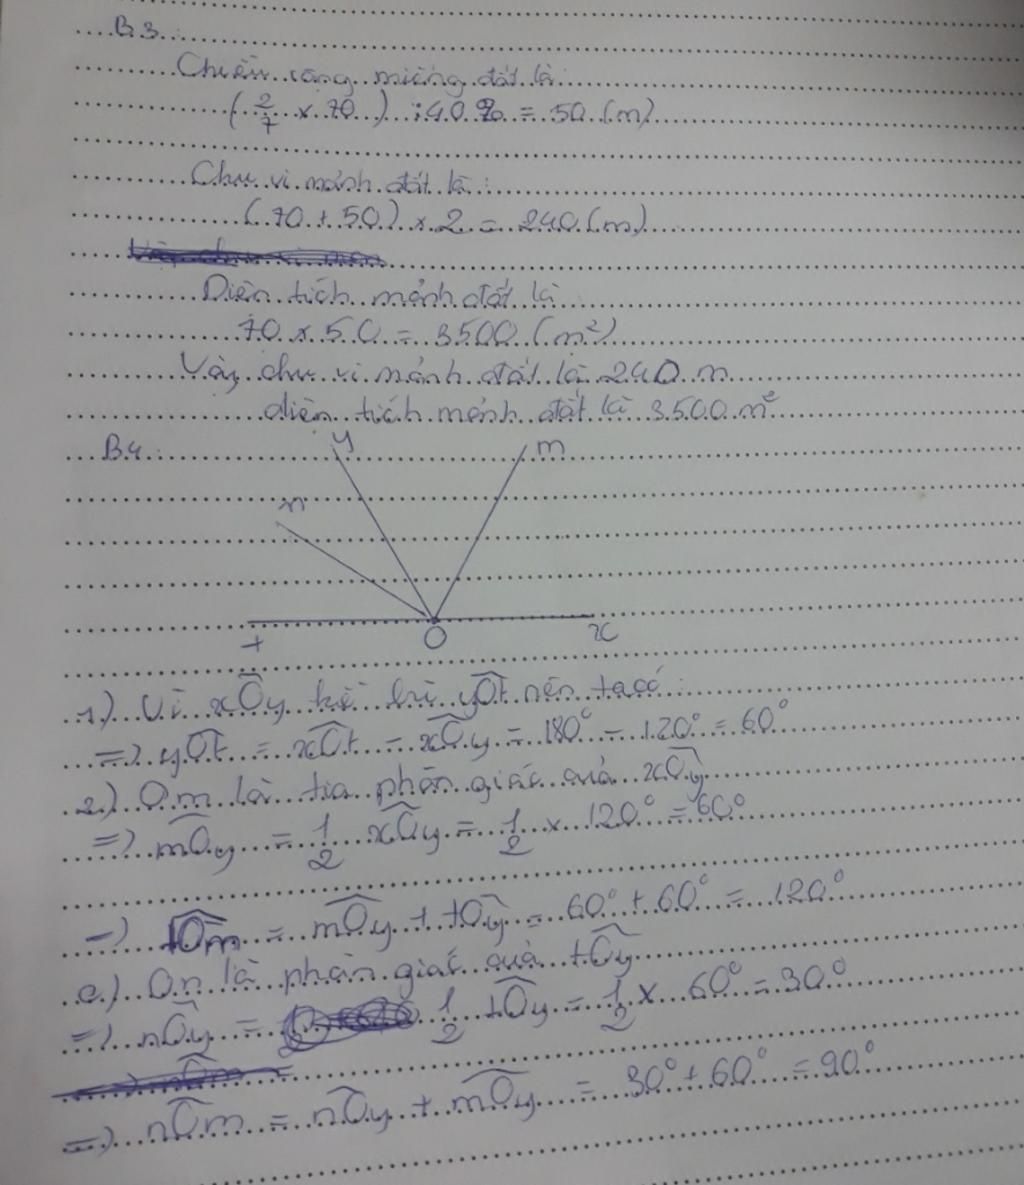 B3.
Chiều rộng miếng đất là:
(2/7 x 70) : 40% = 50 (m)
Chu vi mảnh đất là:
(70 + 50) x 2 = 240 (m)
Diện tích mảnh đất là
70 x 50 = 3500 (m²)
Vậy chu vi mảnh đất là 240 m
diện tích mảnh đất là 3500 m²
B4.
y m
n
t O x
1) Vì xÔy kề bù yÔt nên ta có:
=> yÔt = xÔt - xÔy = 180° - 120° = 60°
2) Om là tia phân giác của xÔy
=> mÔy = 1/2 xÔy = 1/2 x 120° = 60°
=> tÔm = mÔy + tÔy = 60° + 60° = 120°
c) On là phân giác của tÔy
=> nÔy = 1/2 tÔy = 1/2 x 60° = 30°
=> nÔm = nÔy + mÔy = 30° + 60° = 90°